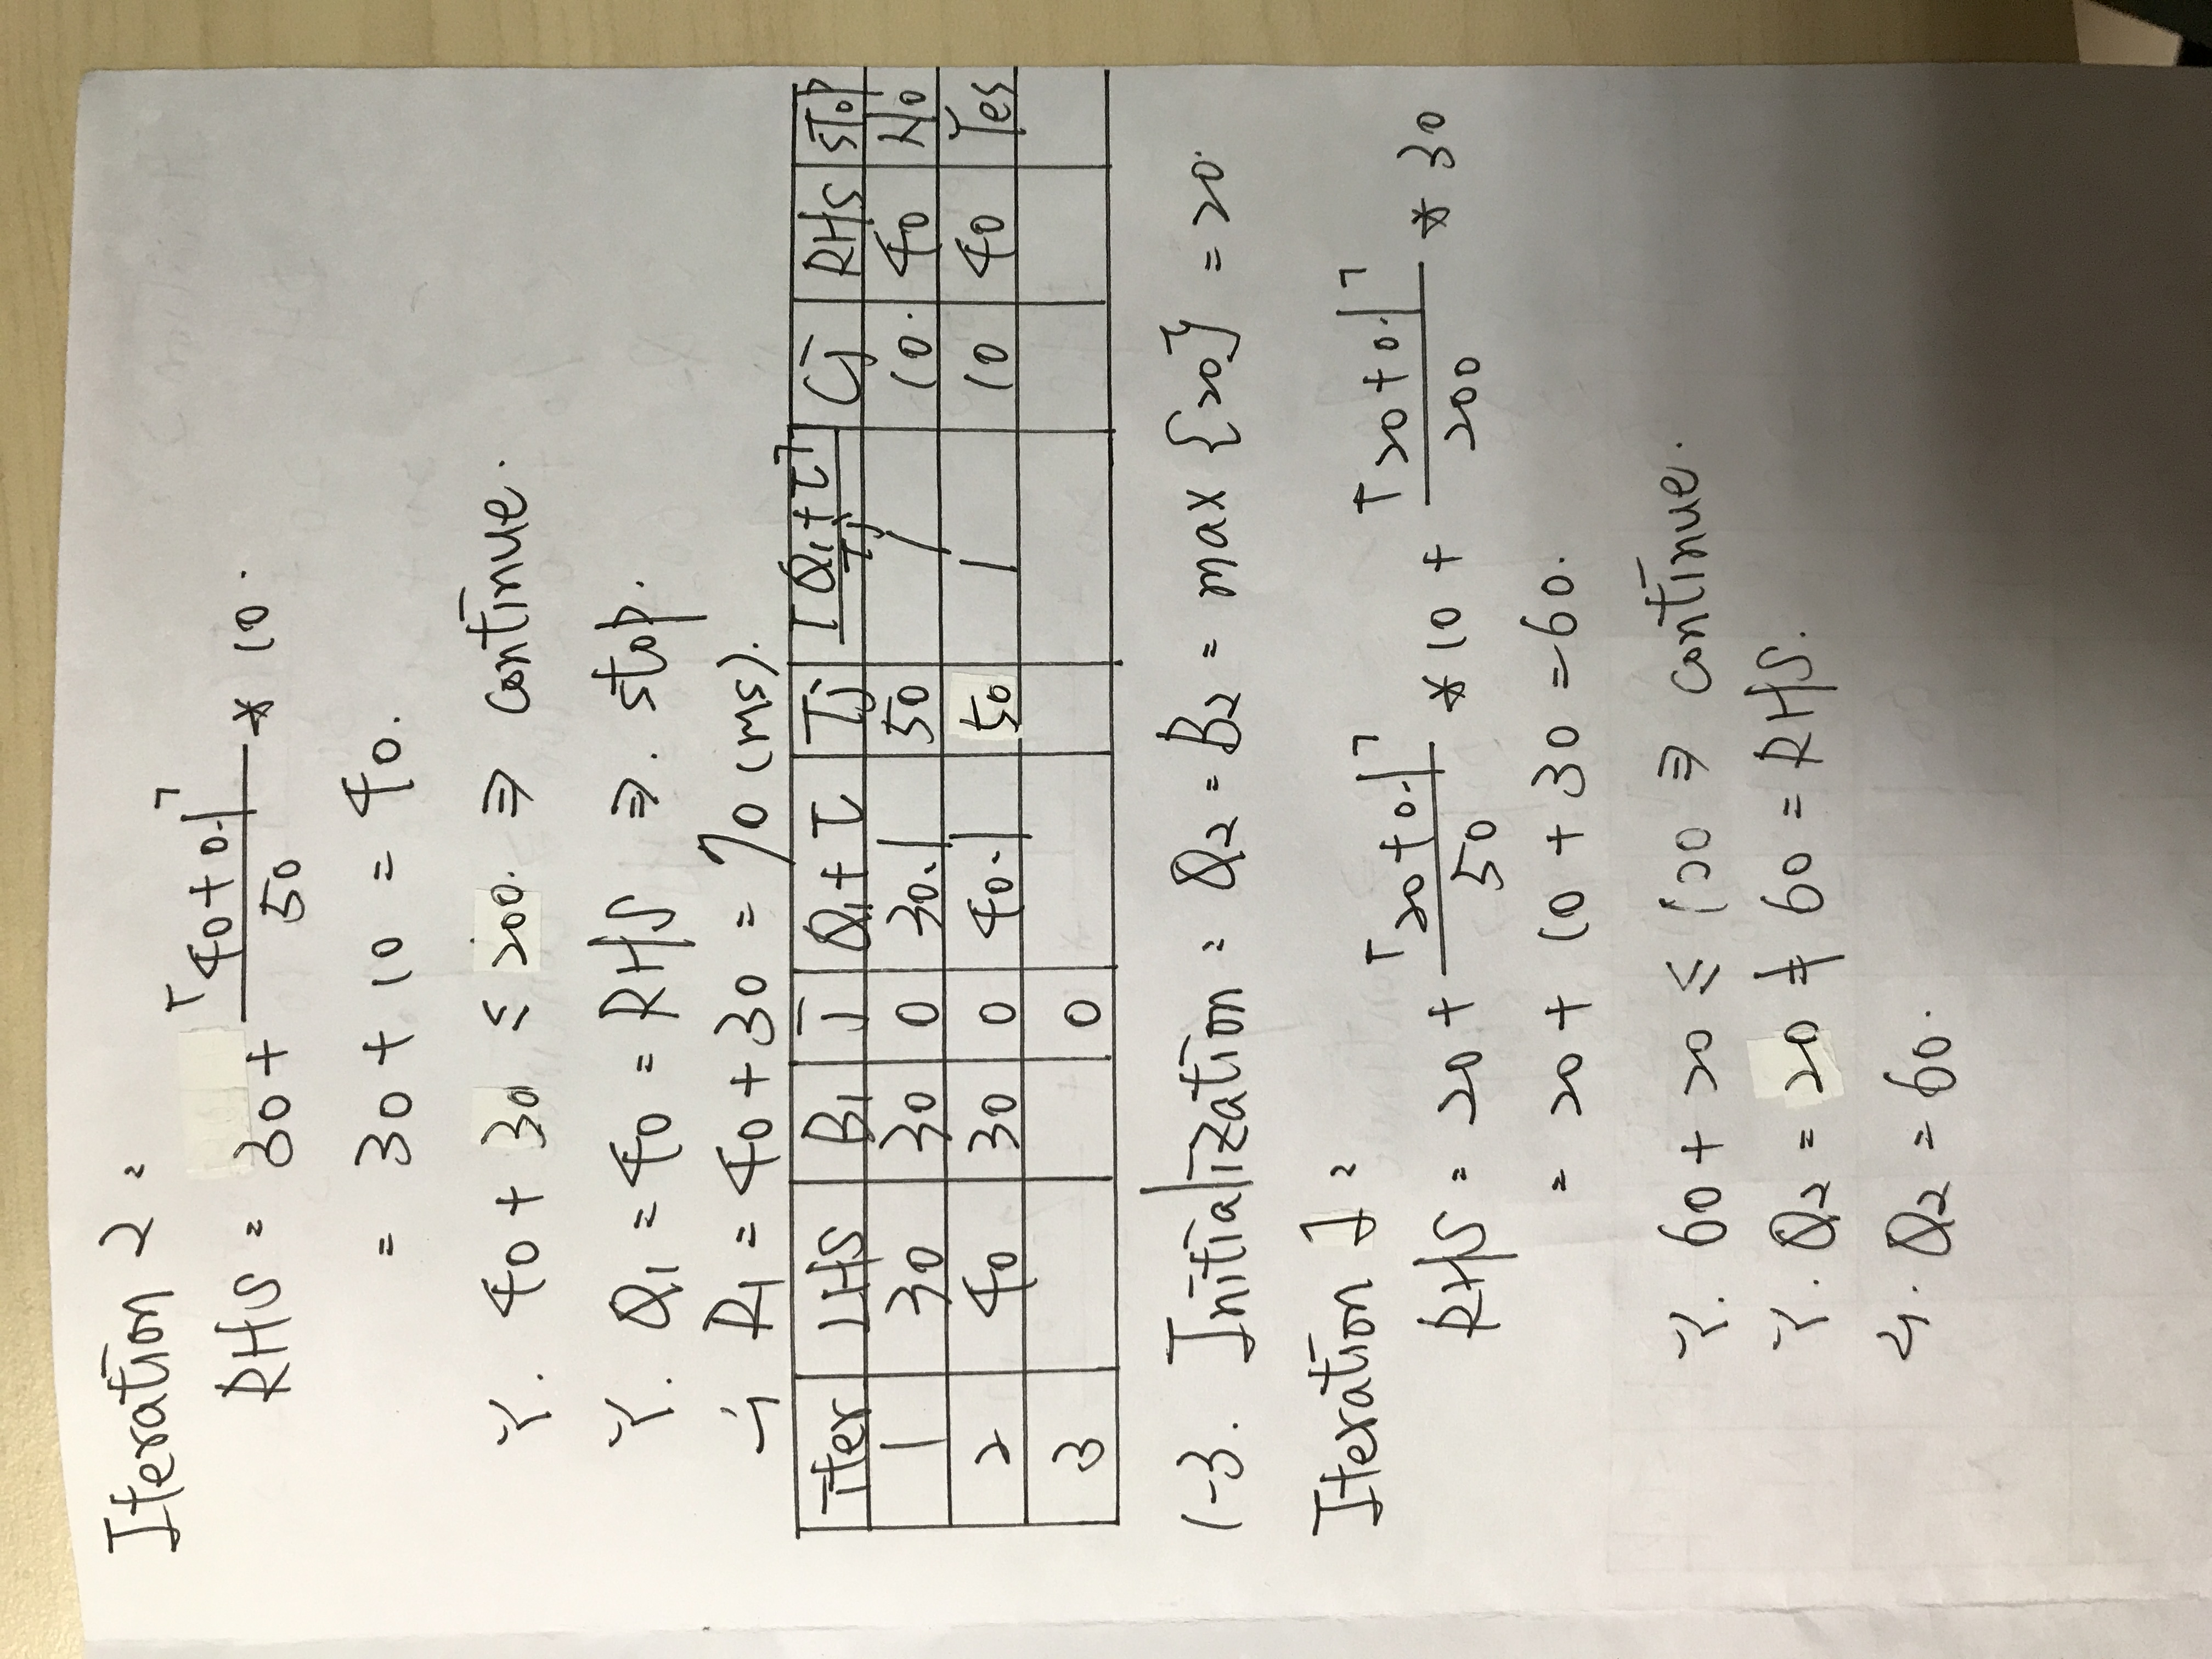 Iteration 2:
RHS = 30 + ⌈40+0.1⌉/50 * 10.
= 30 + 10 = 40.
∵. 40 + 30 ≤ 200. ⇒ continue.
∵. Q1 = 40 = RHS ⇒. stop.
∴ R1 = 40 + 30 = 70 (ms).
iter | LHS | B1 | j | Q1+τ | Tj | ⌈Q1+τ⌉/Tj | Cj | RHS | stop
1 | 30 | 30 | 0 | 30.1 | 50 | 1 | 10. | 40 | No
2 | 40 | 30 | 0 | 40.1 | 50 | 1 | 10 | 40 | Yes
3 | | | 0 | | | | | |
1-3. Initialization: Q2 = B2 = max {20} = 20.
Iteration 1:
RHS = 20 + ⌈20+0.1⌉/50 * 10 + ⌈20+0.1⌉/200 * 30
= 20 + 10 + 30 = 60.
∵. 60 + 20 ≤ 100 ⇒ continue.
∵. Q2 = 20 ≠ 60 = RHS.
∴. Q2 = 60.